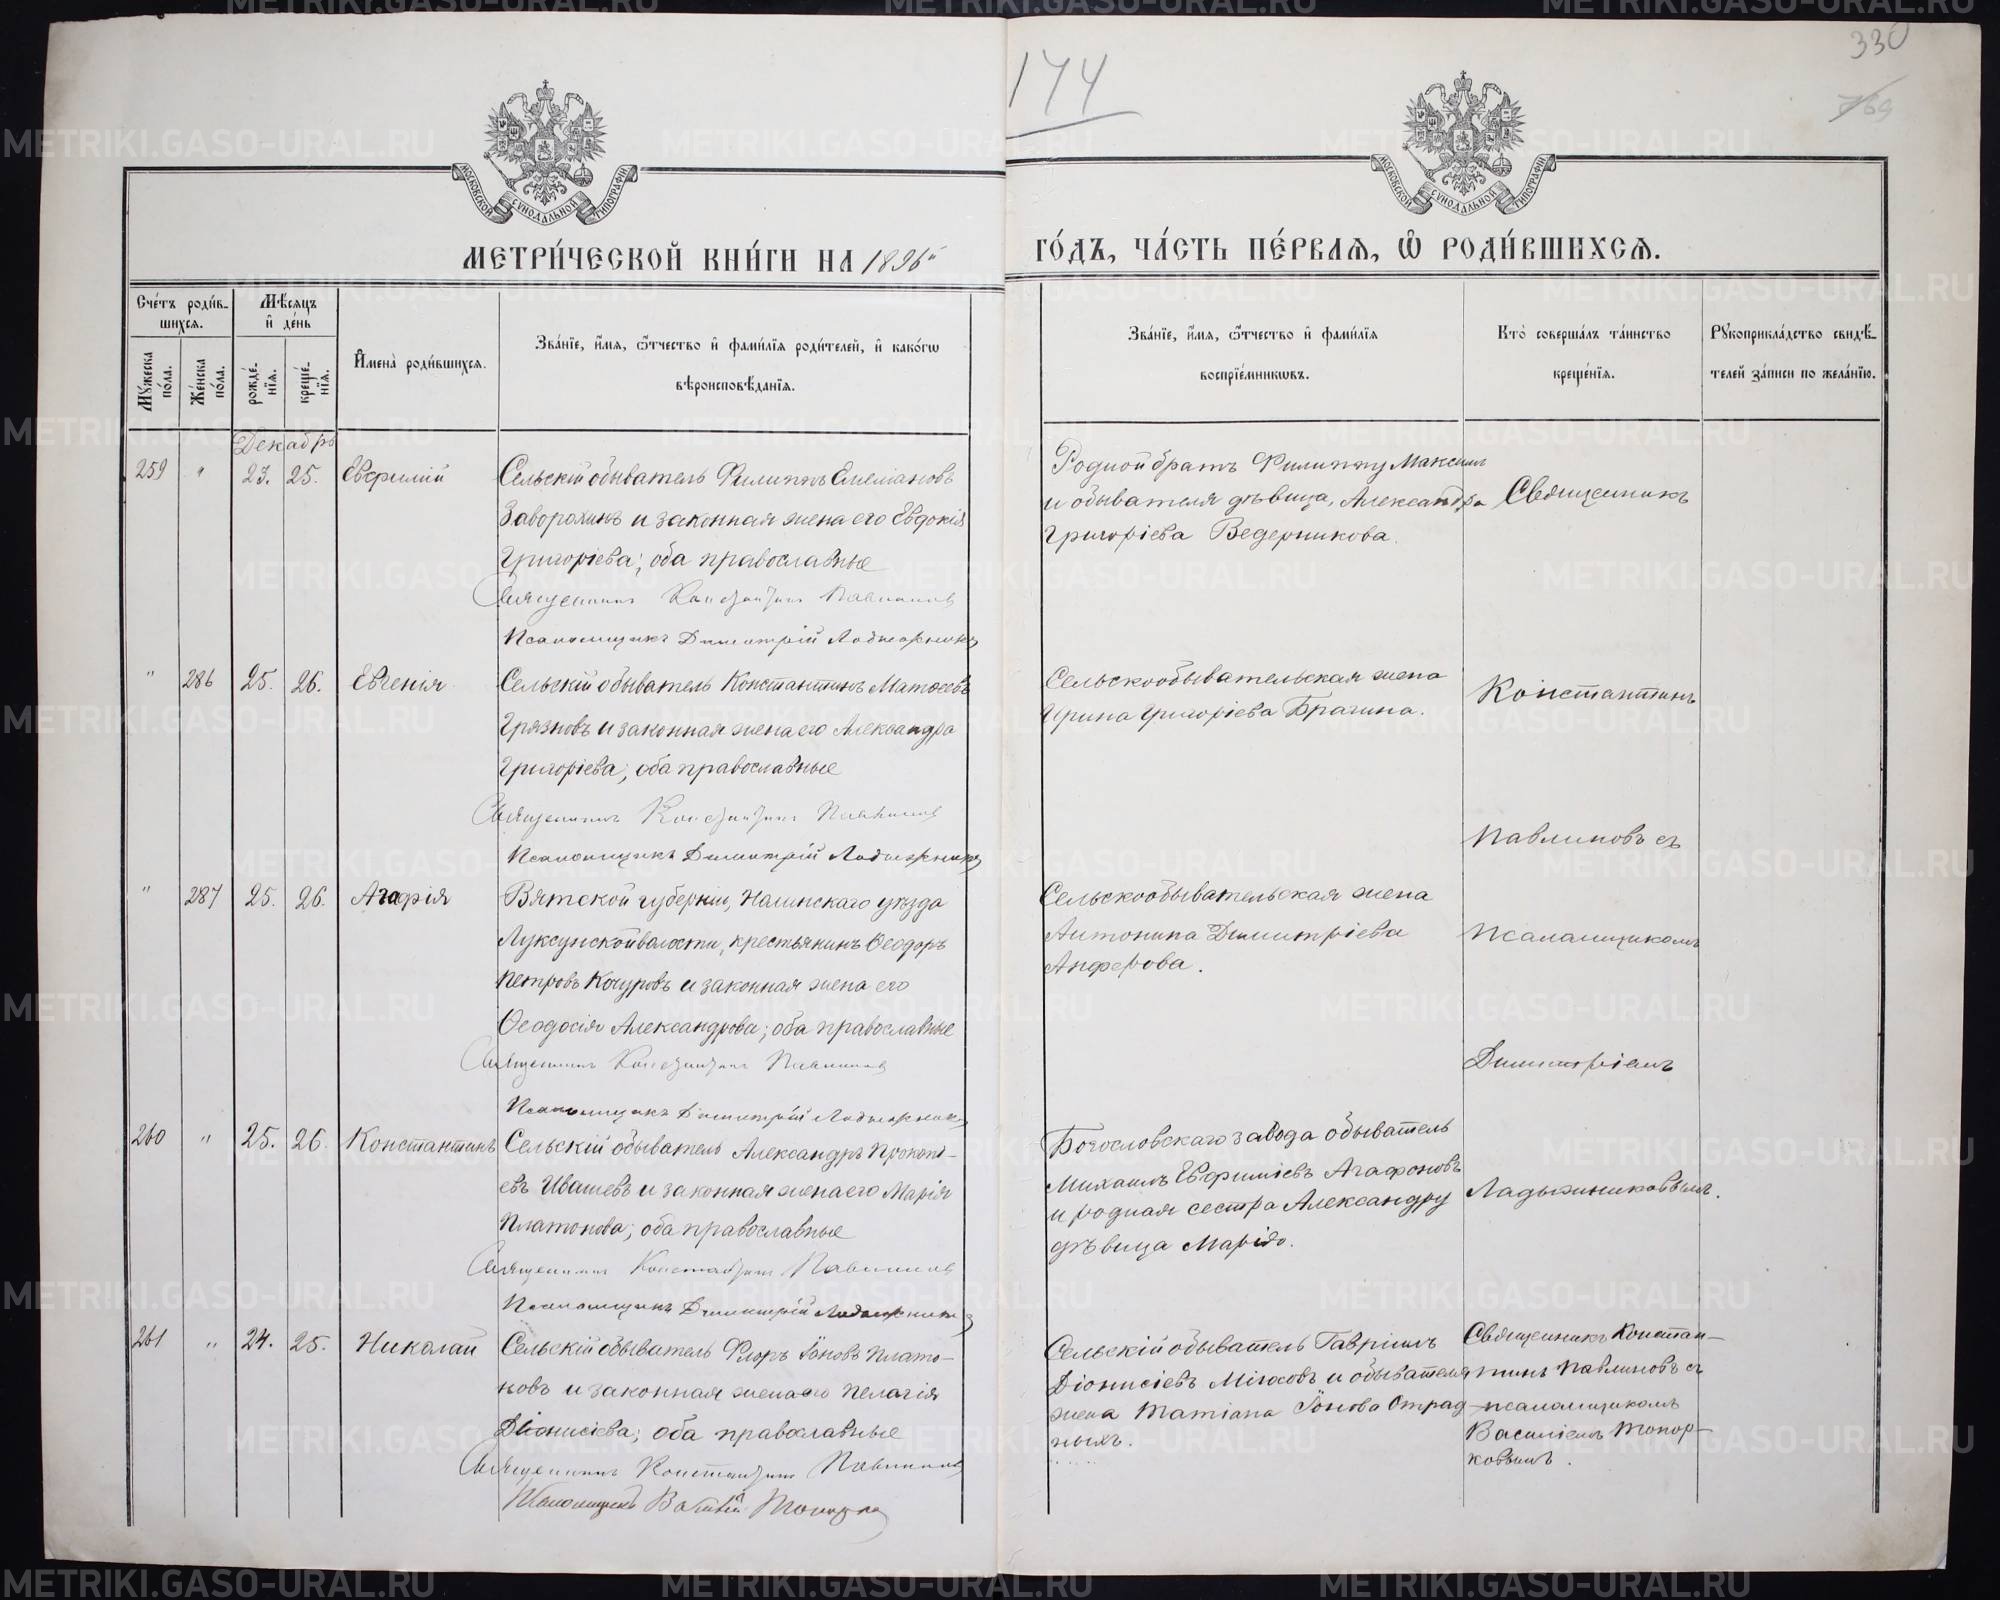 330
174
769
МОСКОВСКОЙ СѴНОДАЛЬНОЙ ТИПОГРАФІИ
МОСКОВСКОЙ СѴНОДАЛЬНОЙ ТИПОГРАФІИ
МЕТРИ́ЧЕСКОЙ КНИ́ГИ НА 1896й
ГО́ДЪ, ЧА́СТЬ ПЕ́РВАЯ, Ѿ РОДИ́ВШИХСЯ.
Сче́тъ роди́в-
шихся.
Мѣ́сяцъ
и де́нь
Му́жеска по́ла.
Же́нска по́ла.
рожде́-
нія.
креще́-
нія.
Имена̀ роди́вшихся.
Зва́ніе, и́мя, ѻ́тчество и фами́лія роди́телей, и како́гѡ
вѣроисповѣ́данія.
Зва́ніе, и́мя, ѻ́тчество и фами́лія
воспріе́мникѡвъ.
Кто̀ соверша́лъ та́инство
креще́нія.
Рукоприкла́дство свидѣ́-
телей за́писи по жела́нію.
Декабрь
259 " 23. 25. Евфимій
Сельскій обыватель Филиппъ Емеліановъ
Заворохинъ и законная жена его Евдокія
Григоріева; оба православные
Священникъ Константинъ Павлиновъ
Псаломщикъ Димитрій Ладыжников
Родной братъ Филиппу Максим
и обывателя дѣвица, Александра
Григоріева Ведерникова.
Священникъ
" 286 25. 26. Евгенія
Сельскій обыватель Константинъ Матѳеевъ
Грязновъ и законная жена его Александра
Григоріева; оба православные
Священникъ Константинъ Павлинов
Псаломщикъ Димитрій Ладыжников
Сельскообывательская жена
Ирина Григоріева Брагина.
Константинъ
Павлиновъ съ
" 287 25. 26. Агафія
Вятской губерніи, Нолинскаго уѣзда
волости, крестьянинъ Ѳеодоръ
Петровъ Кочуровъ и законная жена его
Ѳеодосія Александрова; оба православные
Священникъ Константинъ Павлинов
Псаломщикъ Димитрій Ладыжников
Сельскообывательская жена
Антонина Димитріева
Анферова.
псаломщикомъ
Димитріемъ
260 " 25. 26. Константинъ
Сельскій обыватель Александръ Прокопі-
евъ Ивашевъ и законная жена его Марія
Платонова; оба православные
Священникъ Константинъ Павлинов
Псаломщикъ Димитрій Ладыжников
Богословскаго завода обыватель
Михаилъ Евфиміевъ Агафоновъ
и родная сестра Александру
дѣвица Марія.
Ладыжниковымъ.
261 " 24. 25. Николай
Сельскій обыватель Флоръ Іоновъ Плато-
новъ и законная жена его Пелагія
Діонисіева; оба православные
Священникъ Константинъ Павлинов
Псаломщикъ Василій Топорков
Сельскій обыватель Гавріилъ
Діонисіевъ и обывателя
жена Татіана Іонова Отрад-
ныхъ.
Священникъ Констан-
тинъ Павлиновъ съ
псаломщикомъ
Василіемъ Топор-
ковымъ.
METRIKI.GASO-URAL.RU